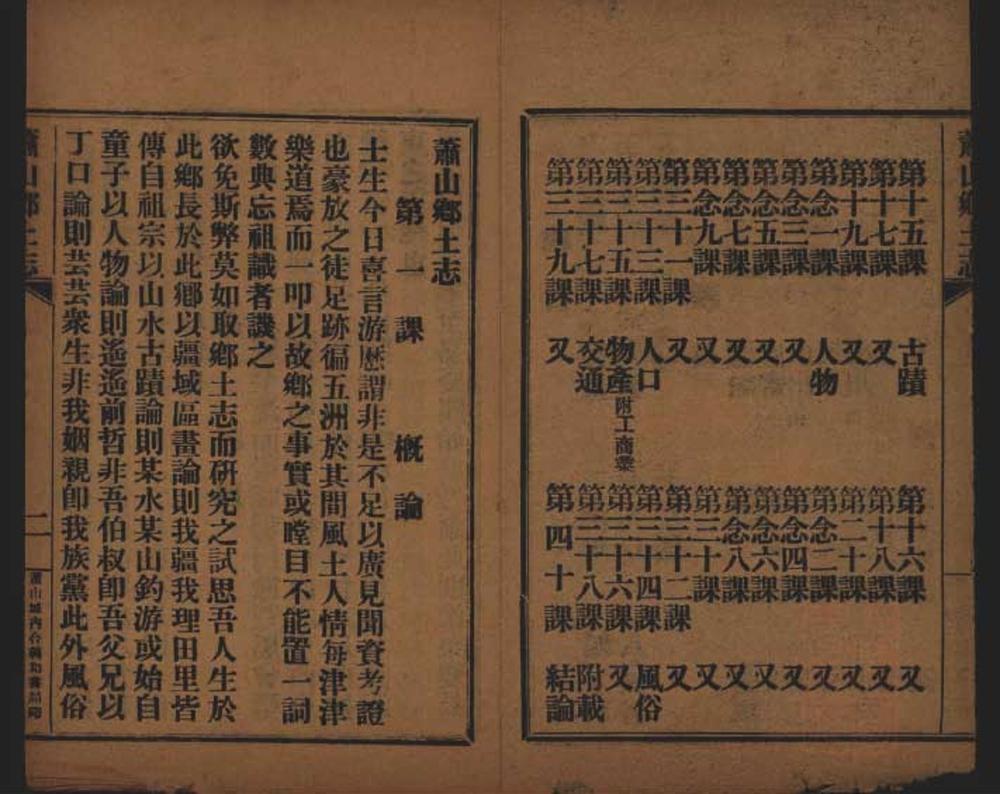 蕭山鄉土志
第十五課 古蹟 第十六課 又
第十七課 又 第十八課 又
第十九課 又 第二十課 又
第念一課 人物 第念二課 又
第念三課 又 第念四課 又
第念五課 又 第念六課 又
第念七課 又 第念八課 又
第念九課 又 第三十課 又
第三十一課 又 第三十二課 又
第三十三課 人口 第三十四課 風俗
第三十五課 物產附工商業 第三十六課 又
第三十七課 交通 第三十八課 附載
第三十九課 又 第四十課 結論
蕭山鄉土志
第一課 概論
士生今日喜言游歷謂非是不足以廣見聞資考證
也豪放之徒足跡徧五洲於其間風土人情每津津
樂道焉而一叩以故鄉之事實或瞠目不能置一詞
數典忘祖識者譏之
欲免斯弊莫如取鄉土志而研究之試思吾人生於
此鄉長於此鄉以疆域區畫論則我疆我理田里皆
傳自祖宗以山水古蹟論則某水某山釣游或始自
童子以人物論則遙遙前哲非吾伯叔卽吾父兄以
丁口論則芸芸衆生非我姻親卽我族黨此外風俗
蕭山鄉土志
二
蕭山城內合義和書局印